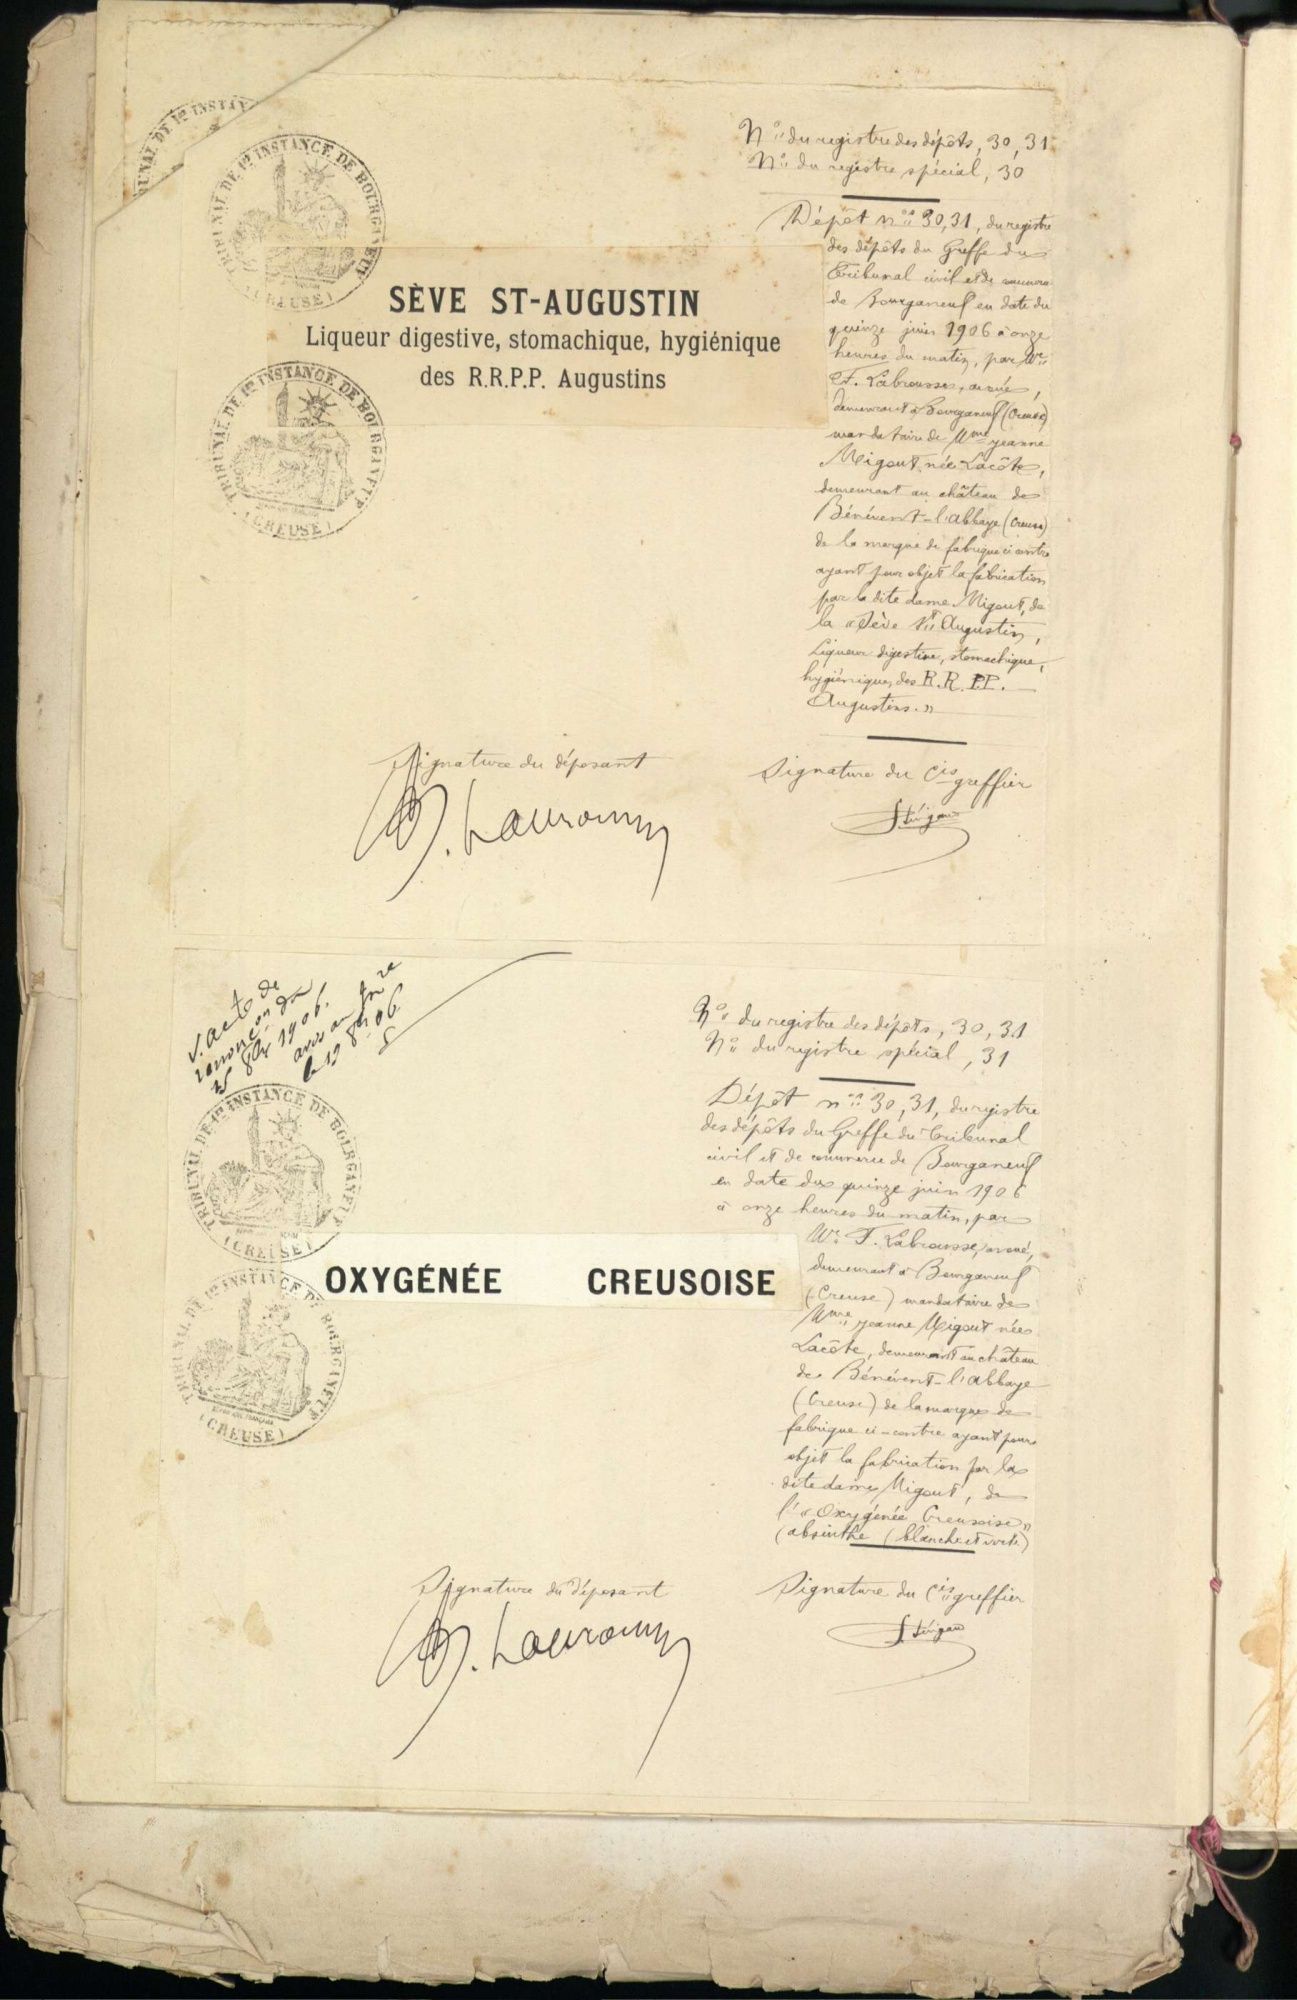 TRIBUNAL DE 1re INSTANCE DE BOURGANEUF
(CREUSE)
SÈVE ST-AUGUSTIN
Liqueur digestive, stomachique, hygiénique
des R.R.P.P. Augustins
TRIBUNAL DE 1re INSTANCE DE BOURGANEUF
(CREUSE)
Nos du registre des dépôts, 30, 31
No du registre spécial, 30
Dépôt nos 30, 31, du registre
des dépôts du Greffe du
Tribunal civil et de commerce
de Bourganeuf en date du
quinze juin 1906 à onze
heures du matin, par Me
F. Labrousse, avoué,
demeurant à Bourganeuf (Creuse)
mandataire de Mme Jeanne
Migout, née Lacôte,
demeurant au château de
Bénévent-l'abbaye (Creuse)
de la marque de fabrique ci contre
ayant pour objet la fabrication
par la dite dame Migout, de
la « Sève St Augustin,
Liqueur digestive, stomachique,
hygiénique, des R.R.P.P.
Augustins. »
Signature du déposant
Signature du Cis greffier
V. acte de
renonciation du
15 8bre 1906.
le 19 8bre 06
TRIBUNAL DE 1re INSTANCE DE BOURGANEUF
(CREUSE)
OXYGÉNÉE CREUSOISE
TRIBUNAL DE 1re INSTANCE DE BOURGANEUF
(CREUSE)
Nos du registre des dépôts, 30, 31
No du registre spécial, 31
Dépôt nos 30, 31, du registre
des dépôts du Greffe du Tribunal
civil et de commerce de Bourganeuf
en date du quinze juin 1906
à onze heures du matin, par
Me F. Labrousse, avoué,
demeurant à Bourganeuf
(Creuse) mandataire de
Mme Jeanne Migout née
Lacôte, demeurant au château
de Bénévent-l'abbaye
(Creuse) de la marque de
fabrique ci-contre ayant pour
objet la fabrication par la
dite dame Migout, de
l'« Oxygénée Creusoise »
(absinthe (blanche et verte)
Signature du déposant
Signature du Cis greffier